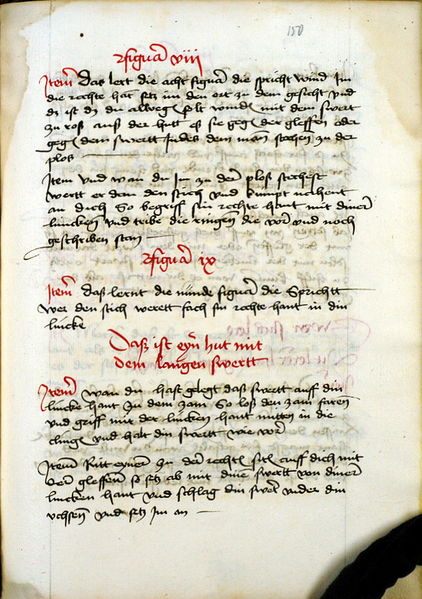 150
Figura viii
Item Das lert die acht figura die spricht wind Im
die rechte hat setz im den ort zu dem gesicht und
dz ist dz du allweg solt winden mit dem swert
zu ross auss der hutt es sie gegen der gleffen oder
gegen dem swertt Indes dem man stechen zu der
plos
Item und wan du Im zu der ploß stechest
wertt er dann den stich und kumpt nachent
an dich So begriff sin rechte hant mit diner
lincken und tribe die ringen die vor und noch
geschriben sten
Figura ix
Item daß lernt die nünde figura die Sprichtt
wer den stich werett fach sin rechte hant in din
lincke
Daß ist eyn hut mit
dem langen swertt
Item wan du hast gelegt daß swertt auff din
lincke hant zu dem zam So loß den zam faren
und griff mit der lincken hant mitten in die
clinge und halt din swertt wie vor
Item Ritt eyner zu der rechten siten auff dich mit
der gleffenn so setz ab mit dine swertt von diner
lincken hant und schlag din swert under din
uchsenn und setz im an